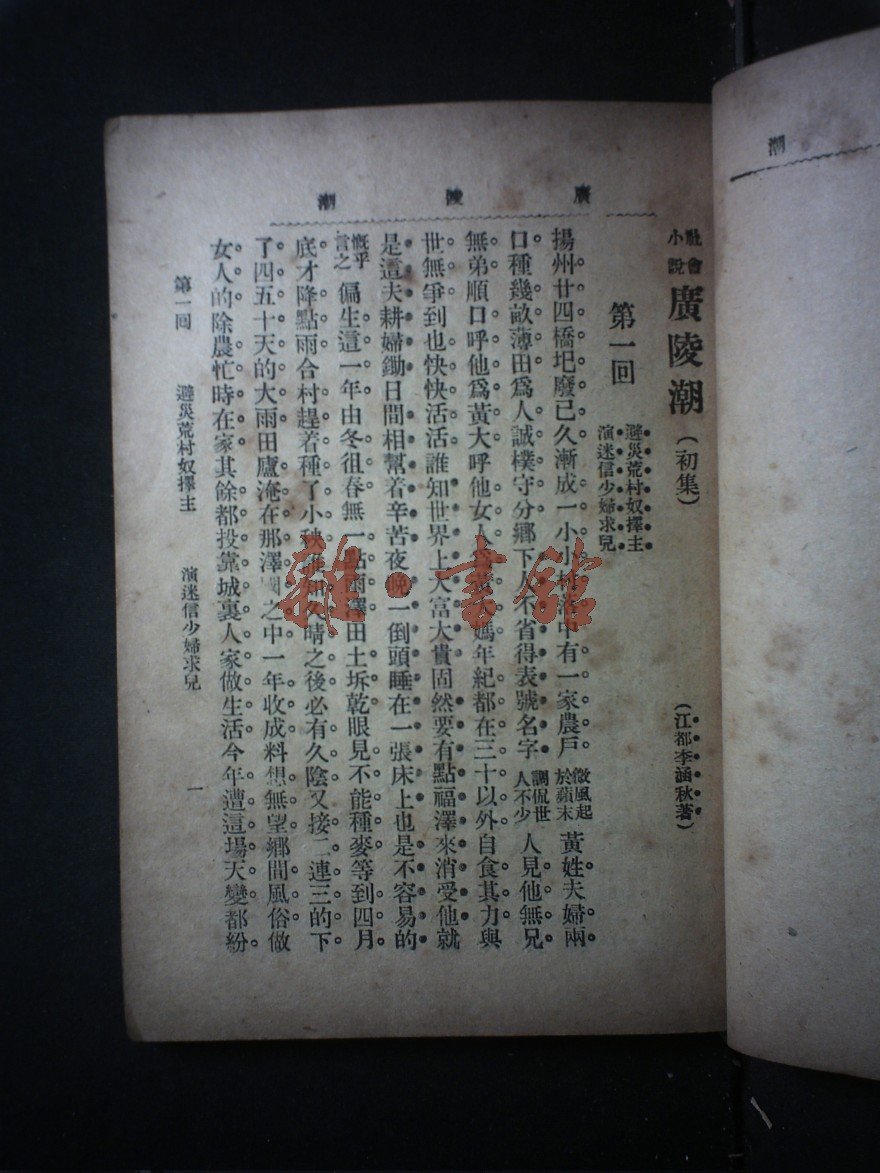 廣陵潮
社會小說 廣陵潮 (初集) (江都李涵秋著)
第一回 避災荒村奴擇主 演迷信少婦求兒
揚州廿四橋圮廢已久漸成一小小村落中有一家農戶 微風起於蘋末 黃姓夫婦兩
口種幾畝薄田爲人誠樸守分鄉下人不省得表號名字 調侃世人不少 人見他無兄
無弟順口呼他爲黃大呼他女人爲黃大媽年紀都在三十以外自食其力與
世無爭到也快快活活誰知世界上大富大貴固然要有點福澤來消受他就
是這夫耕婦鋤日間相幫着辛苦夜晚一倒頭睡在一張床上也是不容易的
慨乎言之 偏生這一年由冬徂春無一點雨澤田土坼乾眼見不能種麥等到四月
底才降點雨合村趕着種了小秧誰知久晴之後必有久陰又接二連三的下
了四五十天的大雨田廬淹在那澤國之中一年收成料想無望鄉間風俗做
女人的除農忙時在家其餘都投靠城裏人家做生活今年遭這場天變都紛
第一回 避災荒村奴擇主 演迷信少婦求兒 一
潮
雜·書館